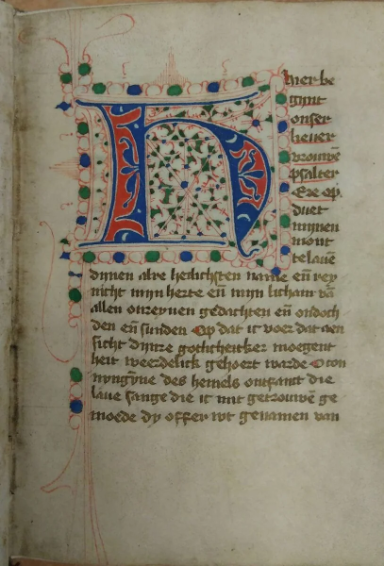 hier be
gynt
onser
liever
vrouwē
psalter
op
duet
mynen
mont
te lauē
dynen alre heilichsten name eñ rey
nicht myn herte eñ myn licham vā
allen onreynen gedachten eñ ondoch
den eñ sunden Op dat ic voer dat aen
sicht dynre moegent
heit weerdelick gehoert warde O con
nyngȳne des hemels ontfanct die
laue sange die ic mit getrouwē ge
moede dy offer wt genamen van